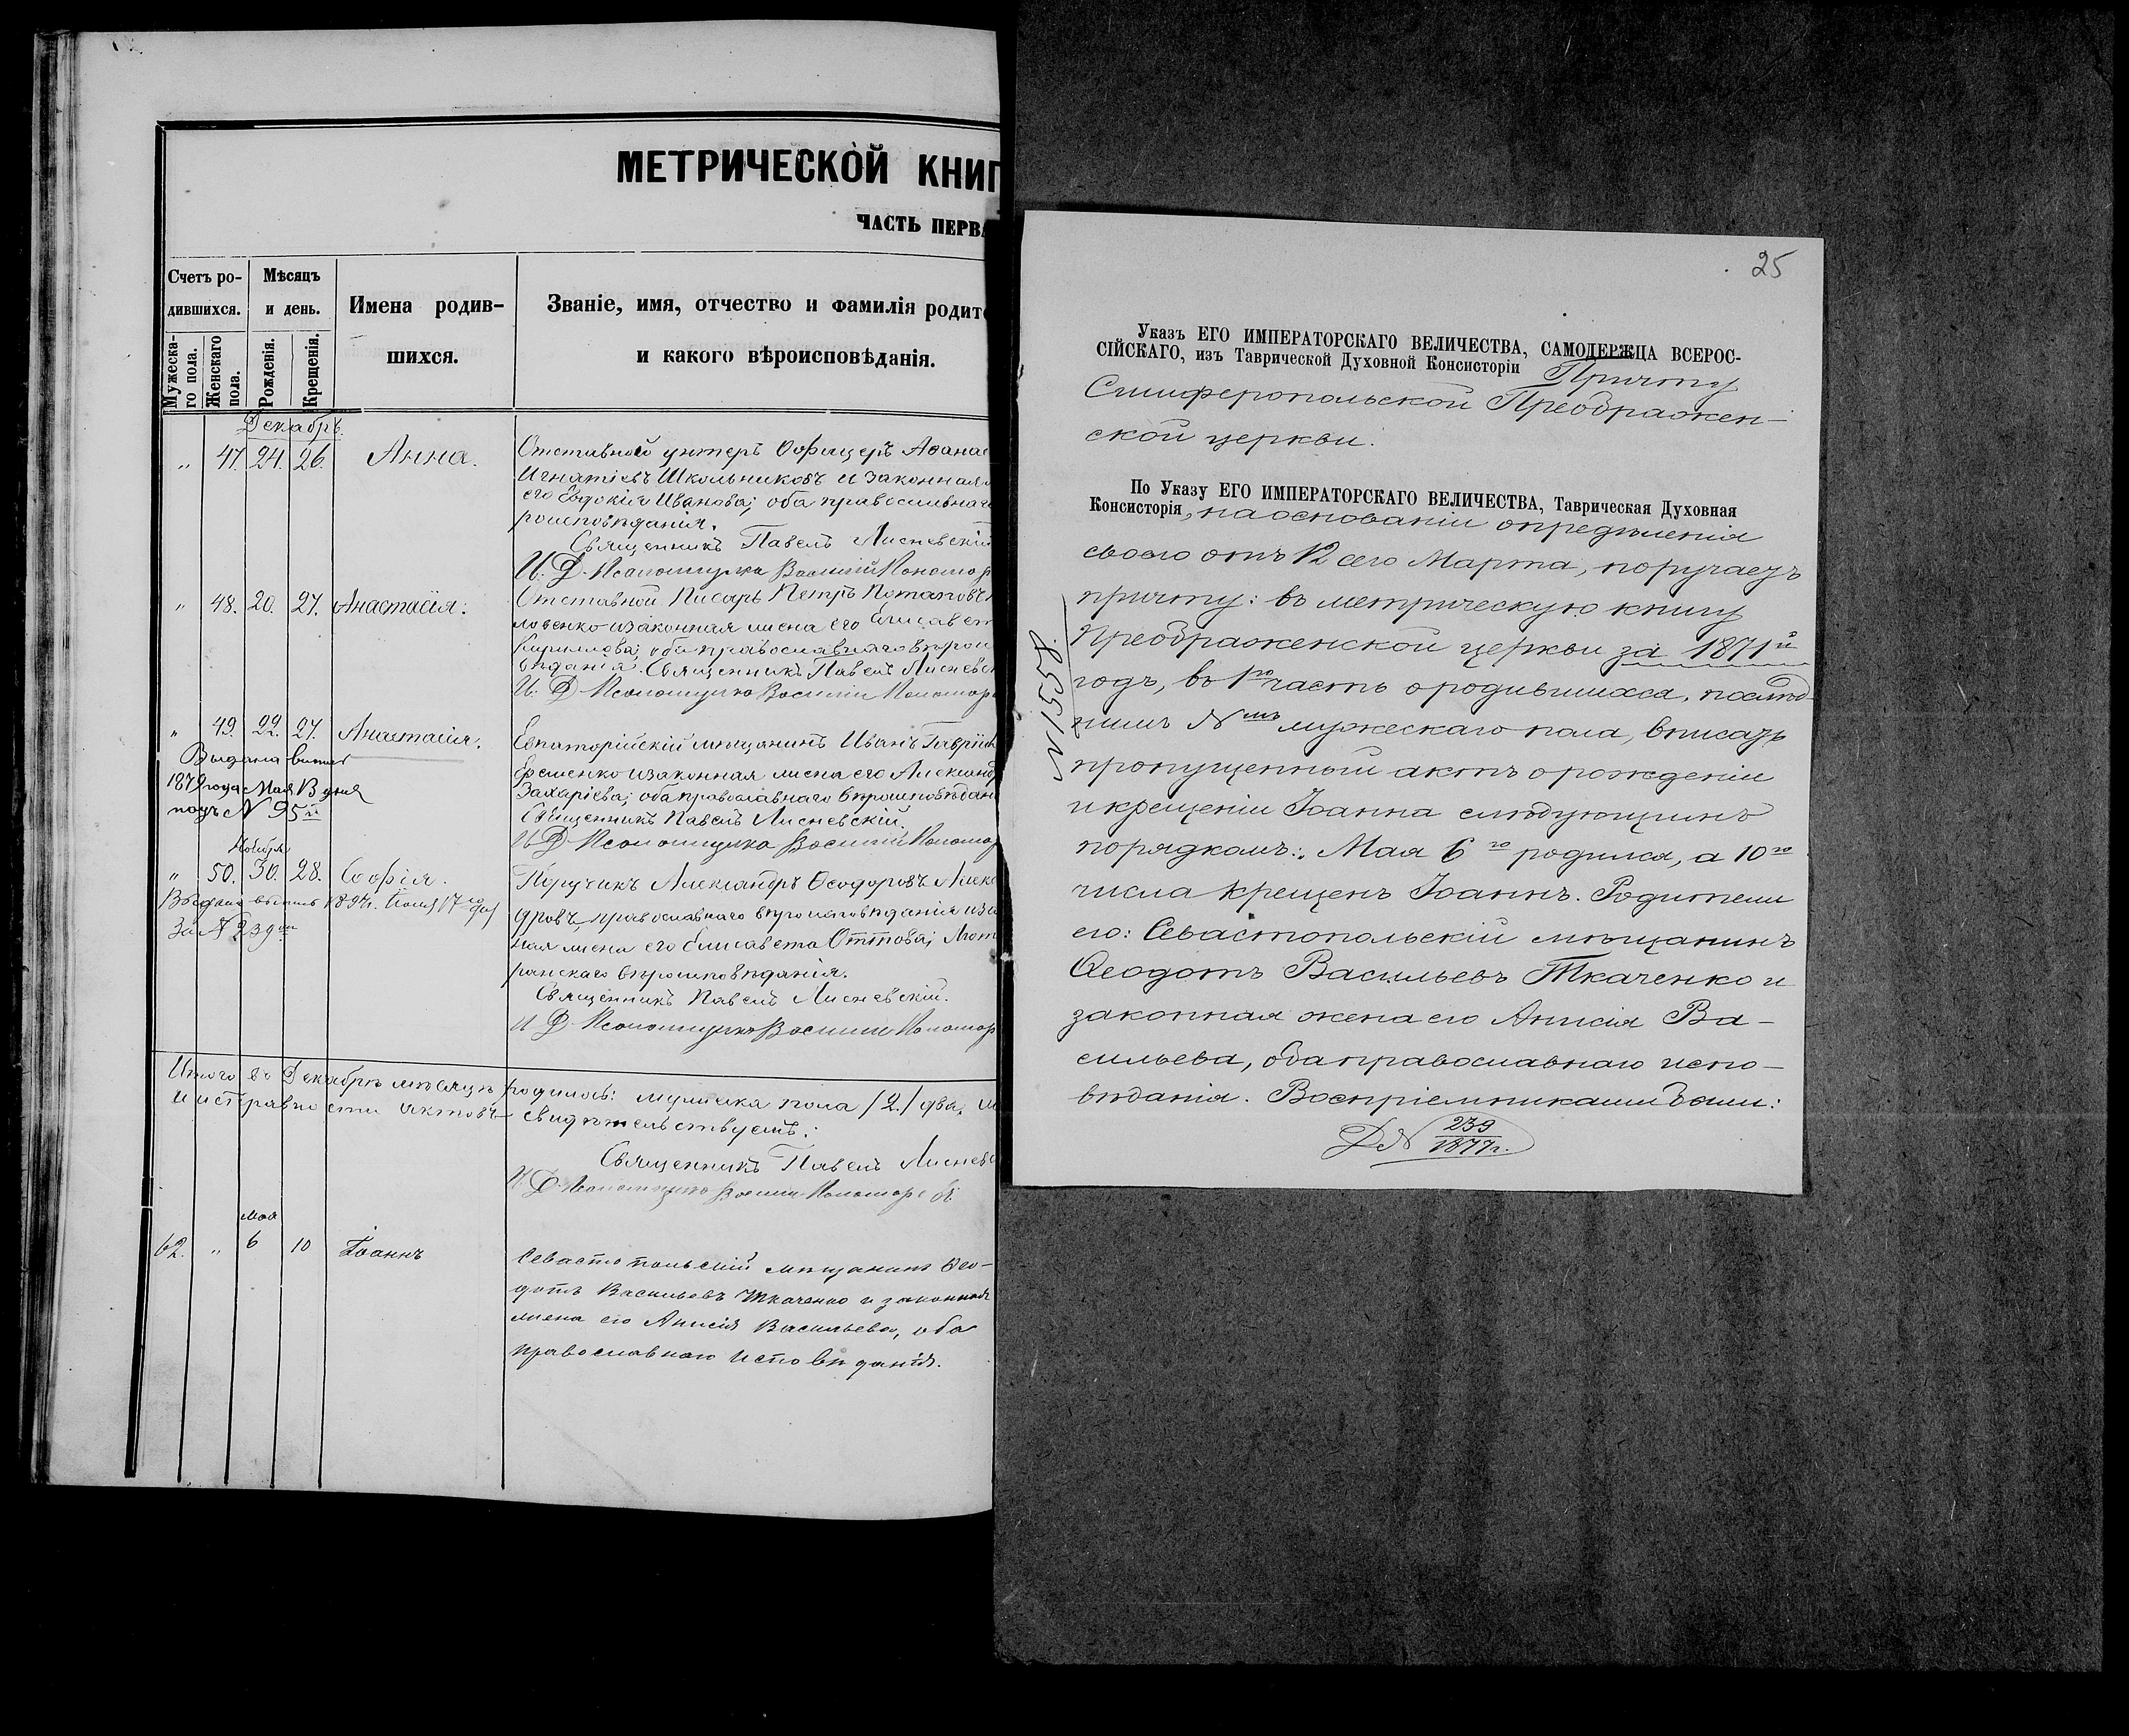 МЕТРИЧЕСКОЙ КНИГ
ЧАСТЬ ПЕРВА
Счетъ ро-
дившихся.
Мужеска-
го пола.
Женскаго
пола.
Мѣсяцъ
и день.
Рожденія.
Крещенія.
Имена родив-
шихся.
Званіе, имя, отчество и фамилія родите
и какого вѣроисповѣданія.
Декабрь.
„ 47. 24. 26. Анна.
Отставной унтеръ Оофицеръ Аѳанас
Игнатіевъ Школьниковъ и законная
его Евдокія Иванова; оба православнаго
роисповѣданія.
Священникъ Павелъ Лисневскій
И. Д. Псаломщика Василій Пономар
„ 48. 20. 27. Анастасія.
Отставной Писарь Петръ Потаповъ
ловенко и законная жена его Елисавет
Кириллова; оба православнаго вѣроис
вѣданія. Священникъ Павелъ Лисневс
И. Д. Псаломщика Василій Пономар
„ 49. 22. 27. Анастасія.
Выдана выпись
1879 года Мая 13 дня
подъ № 95й
Евпаторійскій мѣщанинъ Иванъ Гавріил
Еременко и законная жена его Александ
Захаріева; оба православнаго вѣроисповѣдан
Священникъ Павелъ Лисневскій.
И. Д. Псаломщика Василій Пономар
Ноября
„ 50. 30. 28. Софія.
Выдана выпись 1894г. Іюня 17го дня
За № 239мъ
Поручикъ Александръ Ѳеодоровъ Алекс
дровъ, православнаго вѣроисповѣданія и зак
ная жена его Елисавета Оттова; Лют
ранскаго вѣроисповѣданія.
Священникъ Павелъ Лисневскій.
И Д. Псаломщика Василій Пономар
Итого въ Декабрѣ мѣсяцѣ родилось: мужеска пола /2./ два, ж
и исправности актовъ свидѣтельствуемъ:
Священникъ Павелъ Лисневс
И. Д. Псаломщика Василій Пономаре
Мая
62. „ 6 10 Іоаннъ
Севастопольскій мѣщанинъ Ѳео-
дотъ Васильевъ Ткаченко и законная
жена его Анисія Васильева, оба
православнаго исповѣданія.
25
Указъ ЕГО ИМПЕРАТОРСКАГО ВЕЛИЧЕСТВА, САМОДЕРЖЦА ВСЕРОС-
СІЙСКАГО, изъ Таврической Духовной Консисторіи Причту
Симферопольской Преображен-
ской церкви.
По Указу ЕГО ИМПЕРАТОРСКАГО ВЕЛИЧЕСТВА, Таврическая Духовная
Консисторія, на основаніи опредѣленія
своего отъ 12 сего Марта, поручаетъ
причту: въ метрическую книгу
Преображенской церкви за 1871й
годъ, въ 1ю часть о родившихся, послѣд-
нимъ №мъ мужескаго пола, вписать
пропущенный актъ о рожденіи
и крещеніи Іоанна слѣдующимъ
порядкомъ: Мая 6го родился, а 10го
числа крещенъ Іоаннъ. Родители
его: Севастопольскій мѣщанинъ
Ѳеодотъ Васильевъ Ткаченко и
законная жена его Анисія Ва-
сильева, оба православнаго испо-
вѣданія. Воспріемниками были:
Д № 239
1877г.
№ 1558.